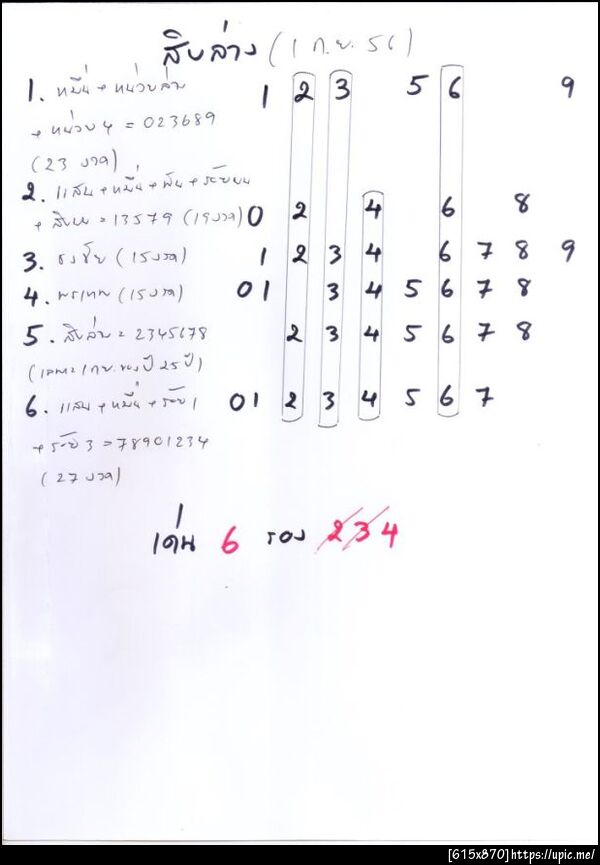 สิบล่าง (1 ก.ย. 56)
1. หมื่น + หน่วยล่าง 1 2 3 5 6 9
+ หน่วย 4 = 023689
(23 งวด)
2. แสน + หมื่น + พัน + ร้อยบน
+ สิบบน = 13579 (19งวด) 0 2 4 6 8
3. ธงชัย (15งวด) 1 2 3 4 6 7 8 9
4. พรเทพ (15งวด) 0 1 3 4 5 6 7 8
5. สิบล่าง = 2345678 2 3 4 5 6 7 8
(เฉพาะ 1 ก.ย. ของปี 25 ปี)
6. แสน + หมื่น + ร้อย 1 0 1 2 3 4 5 6 7
+ ร้อย 3 = 78901234
(27 งวด)
เด่น 6 รอง 2 3 4
[615x870]https://upic.me/